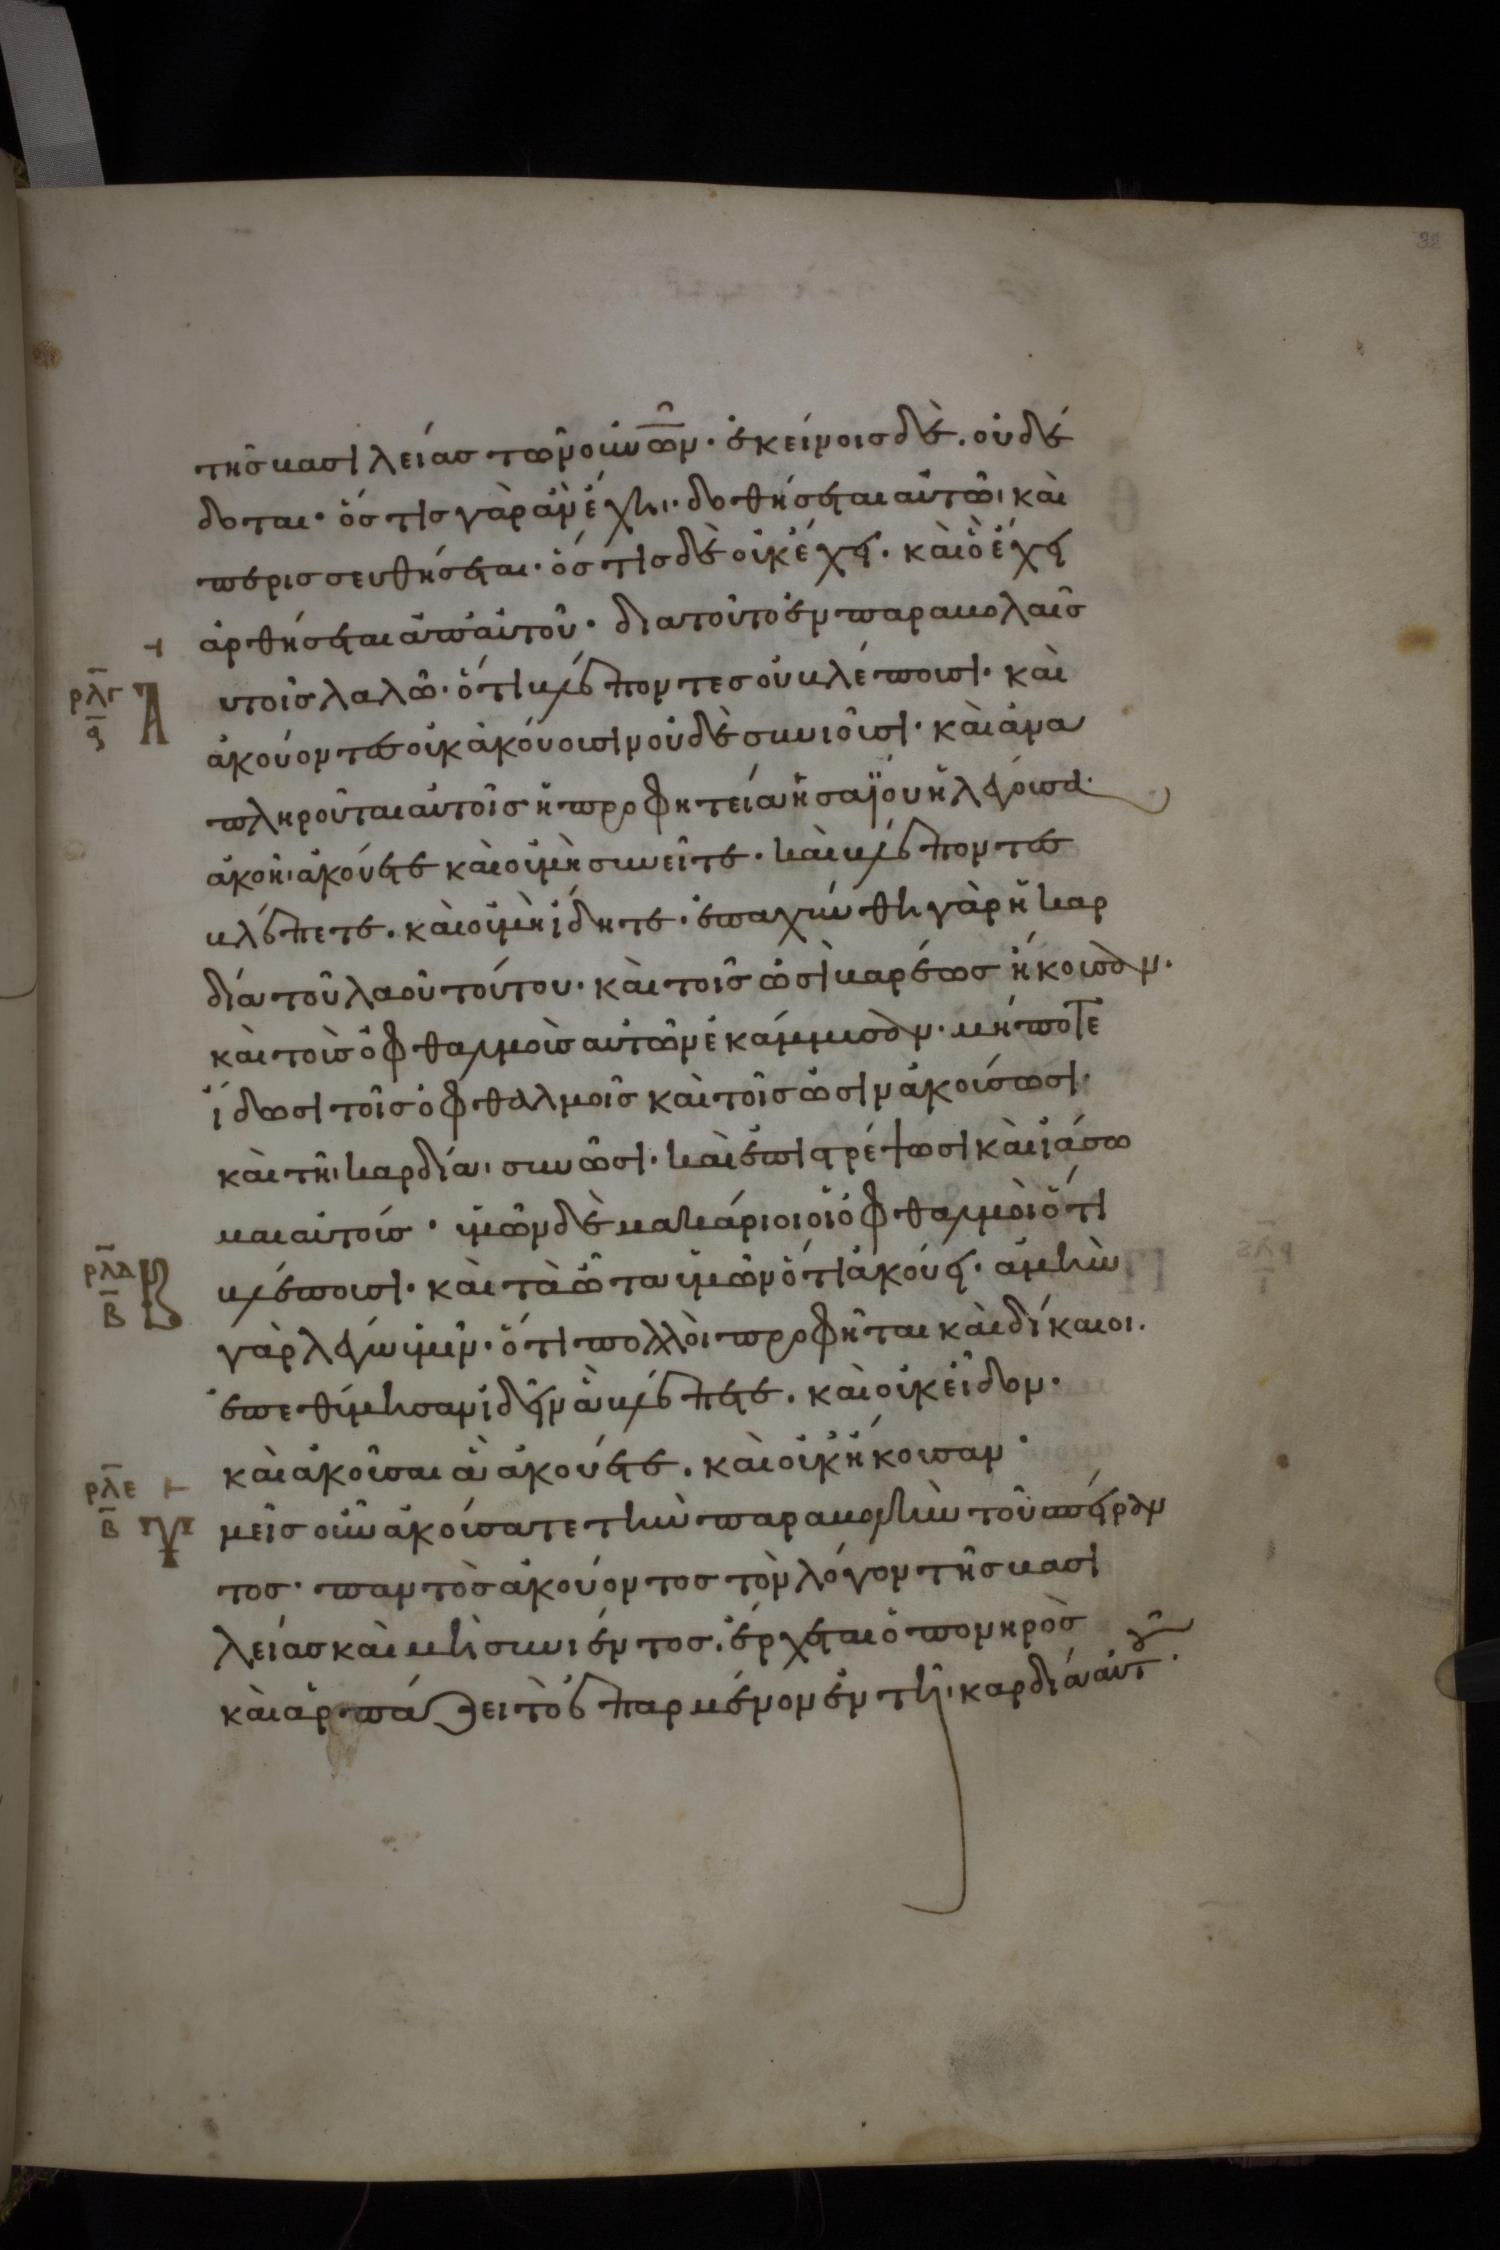 32
τῆς βασιλείας τῶν οὐνῶν· ἐκείνοις δὲ. οὐ δέ
δοται· ὅστις γὰρ ἂν ἔχηι· δοθήσεται αὐτῶι καὶ
περισσευθήσεται· ὅστις δὲ οὐκ ἔχει. καὶ ὃ ἔχει
ἀρθήσεται ἀπ αὐτοῦ· διατοῦτο ἐν παραβολαῖς
ρλγ ϛ Α υτοῖς λαλῶ· ὅτι βλέποντες οὐ βλέπουσι· καὶ
ἀκούοντες οὐκ ἀκούουσιν οὐδὲ συνιοῦσι· καὶ ἀνα
πληροῦται αὐτοῖς ἡ προφητεία ἡσαΐου ἡ λέγουσα·
ἀκοῆι ἀκούσετε καὶ οὐ μὴ συνεῖτε· καὶ βλέποντες
βλέπετε. καὶ οὐ μὴ ἴδητε· ἐπαχύνθη γὰρ ἡ καρ
δία τοῦ λαοῦ τούτου· καὶ τοῖς ὠσὶ βαρέως ἤκουσαν·
καὶ τοὺς ὀφθαλμοὺς αὐτῶν ἐκάμμυσαν· μήποτε
ἴδωσι τοῖς ὀφθαλμοῖς καὶ τοῖς ὠσὶν ἀκούσωσι·
καὶ τῆι καρδίαι συνῶσι· καὶ ἐπιστρέψωσι καὶ ἰάσω
μαι αὐτούς· ὑμῶν δὲ μακάριοι οἱ ὀφθαλμοὶ ὅτι
ρλδ Β βλέπουσι· καὶ τὰ ὦτα ὑμῶν ὅτι ἀκούει· ἀμὴν
γὰρ λέγω ὑμῖν· ὅτι πολλοὶ προφῆται καὶ δίκαιοι.
ἐπεθύμησαν ἰδεῖν ἃ βλέπετε. καὶ οὐκ εἶδον·
καὶ ἀκοῦσαι ἃ ἀκούετε. καὶ οὐκ ἤκουσαν·
ρλε Β Υ μεῖς οὖν ἀκούσατε τὴν παραβολὴν τοῦ σπείραν
τος· παντὸς ἀκούοντος τὸν λόγον τῆς βασι
λείας καὶ μὴ συνιέντος. ἔρχεται ὁ πονηρὸς
καὶ ἁρπάζει τὸ ἐσπαρμένον ἐν τῆι καρδία αὐτοῦ·